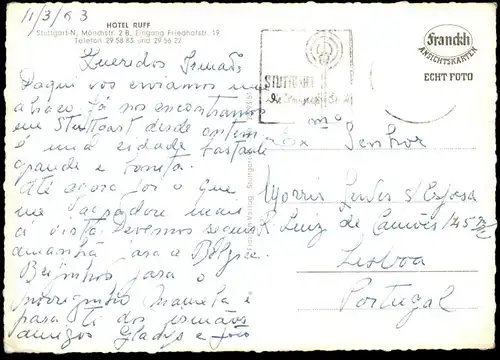 11/3/63
HOTEL RUFF
Stuttgart-N, Mönchstr. 2 B, Eingang Friedhofstr. 19
Telefon 29 58 83 und 29 56 22
Queridos Irmãos,
Daqui vos enviamos um
abraço. Já nos encontramos
em Stuttgart desde ontem,
é uma cidade bastante
grande e bonita.
Até agora foi o que
me agradou mais
à vista. Devemos seguir
amanhã para a Bélgica.
Beijinhos para o
Manuela e
para ti dos irmãos
amigos Gladys e João
STUTTGART
Franckh
ANSICHTSKARTEN
ECHT FOTO
Exmo Senhor
Morris e Esposa
R. Luiz de Camões 145
Lisboa
Portugal